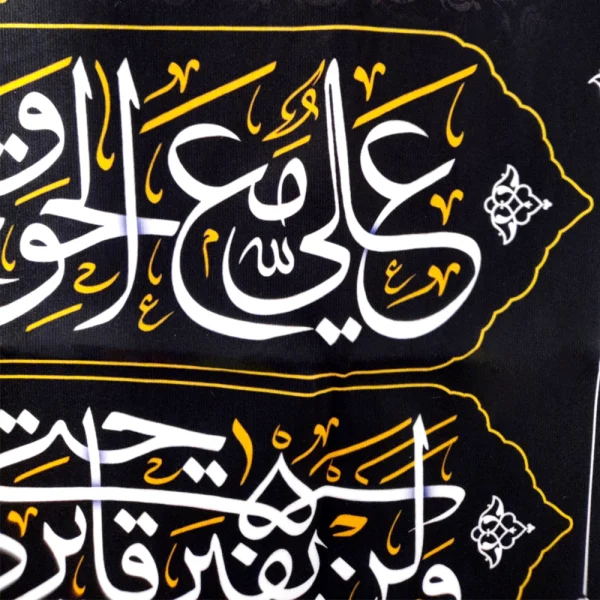 علي مع الحق و
ولن يفترقا حتى يردا